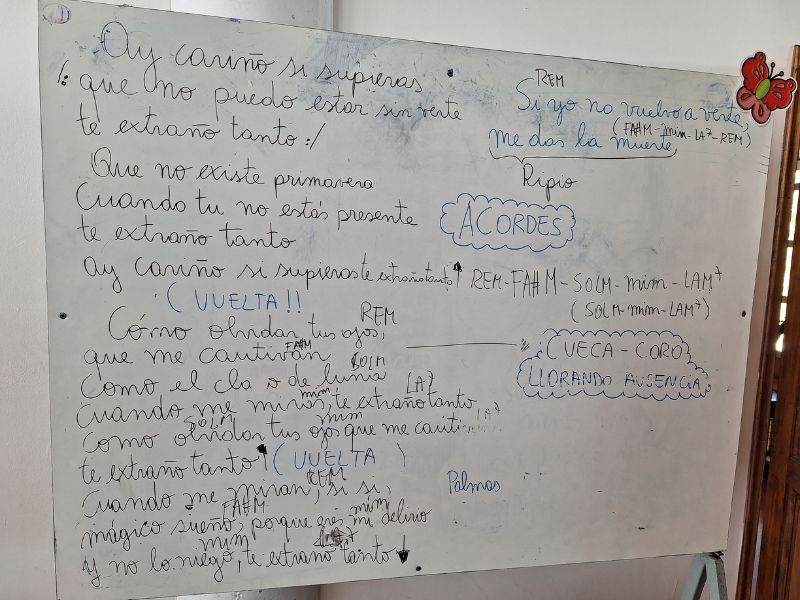 Ay cariño si supieras
/: que no puedo estar sin verte
te extraño tanto :/
Que no existe primavera
Cuando tu no estás presente
te extraño tanto
ay cariño si supieras te extraño tanto
(VUELTA!!
REM
Cómo olvidar tus ojos,
que me cautivan
FA#M
SOLM
Como el cla o de luna
LA7
mim
cuando me miras, te extraño tanto
SOLM mim LA7
como olvidar tus ojos que me cauti
te extraño tanto (VUELTA )
REM
Cuando me miran, si si,
FA#M mim
mágico sueño, porque eres mi delirio
mim
y no lo niego, te extraño tanto
REM
Si yo no vuelvo a verte,
(FA#M-mim-LA7-REM)
me das la muerte
Ripio
ACORDES
REM-FA#M-SOLM-mim-LAM7
(SOLM-mim-LAM7)
CUECA-CORO
LLORANDO AUSENCIA
Palmas